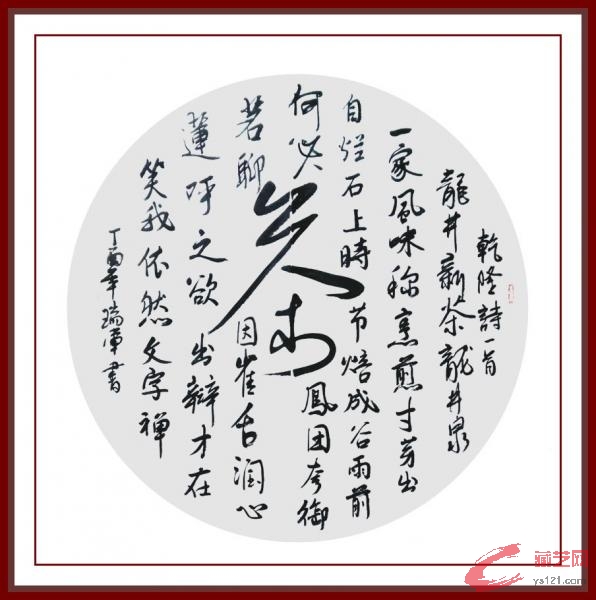 乾隆詩一首
龍井新茶龍井泉
一家風味称烹煎寸芽出
自烂石上時节焙成谷雨前
何必鳳团夸御
茗聊因雀舌润心
蓮呼之欲出辯才在
笑我依然文字禅
丁酉年瑞軍書
茶
藏艺网
ys121.com